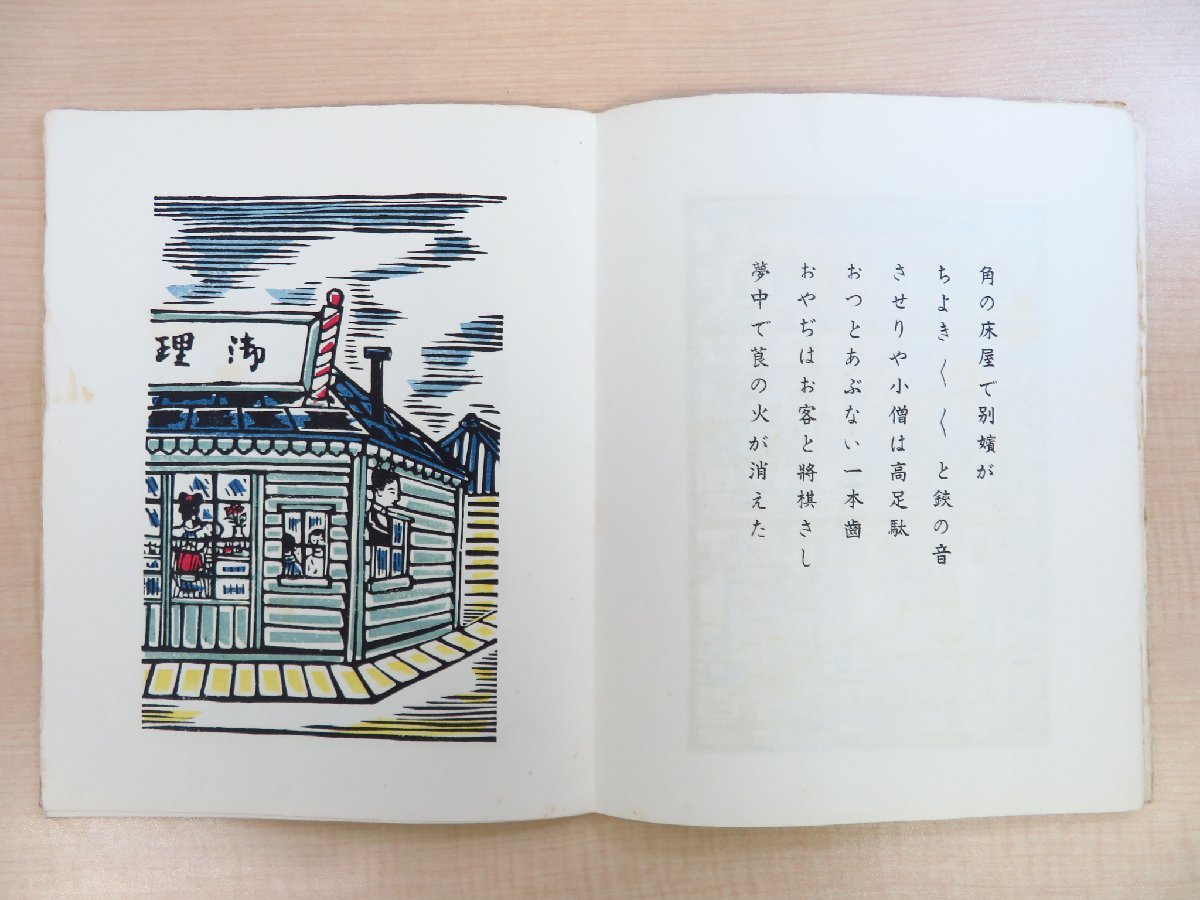 角の床屋で別嬪が
ちよき〱〱と鋏の音
させりや小僧は高足駄
おつとあぶない一本齒
おやぢはお客と將棋さし
夢中で莨の火が消えた
御理